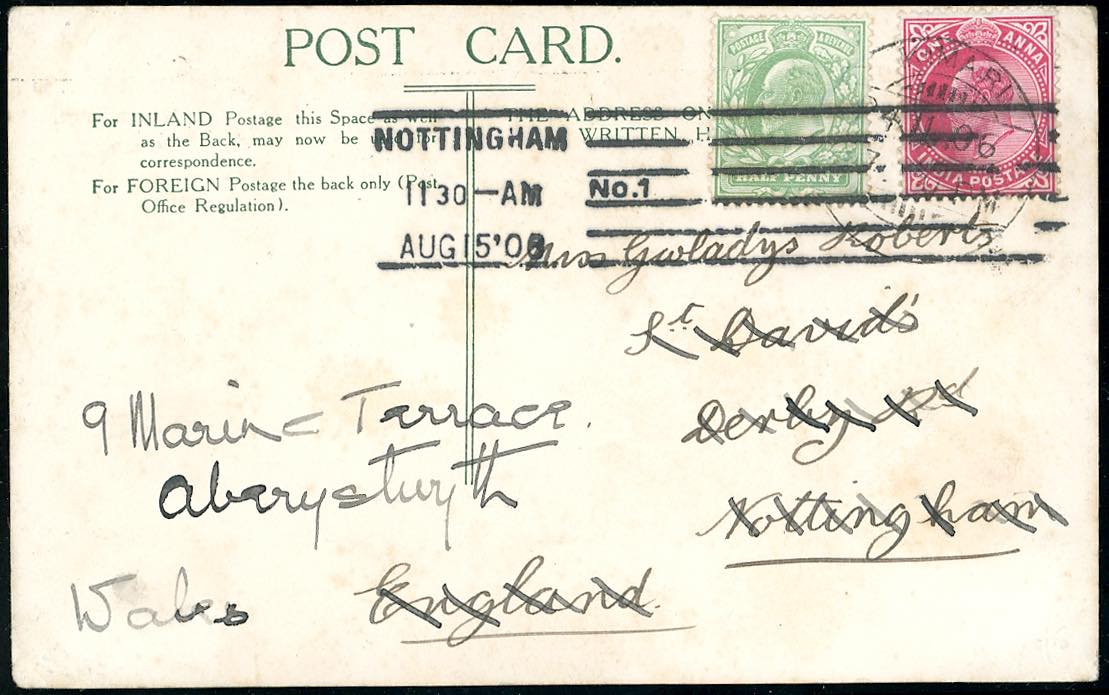 POST CARD.
For INLAND Postage this Space as well
as the Back, may now be
correspondence.
For FOREIGN Postage the back only (Post
Office Regulation).
THE ADDRESS ON
WRITTEN H
NOTTINGHAM
11 30—AM
AUG 15'06
No.1
POSTAGE & REVENUE
HALF PENNY
ONE ANNA
INDIA POSTAGE
Miss Gwladys Roberts
St David's
Derby rd
Nottingham
England
9 Marine Terrace.
Aberystwyth
Wales